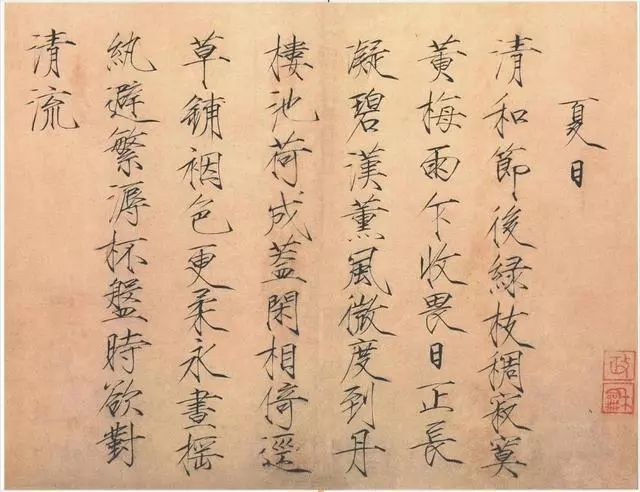 夏日
清和節後緑枝稠寂寞
黄梅雨乍收畏日正長
凝碧漢薫風微度到丹
樓池荷成蓋閑相倚逕
草鋪裀色更柔永晝搖
紈避繁溽杯盤時欲對
清流
政龢